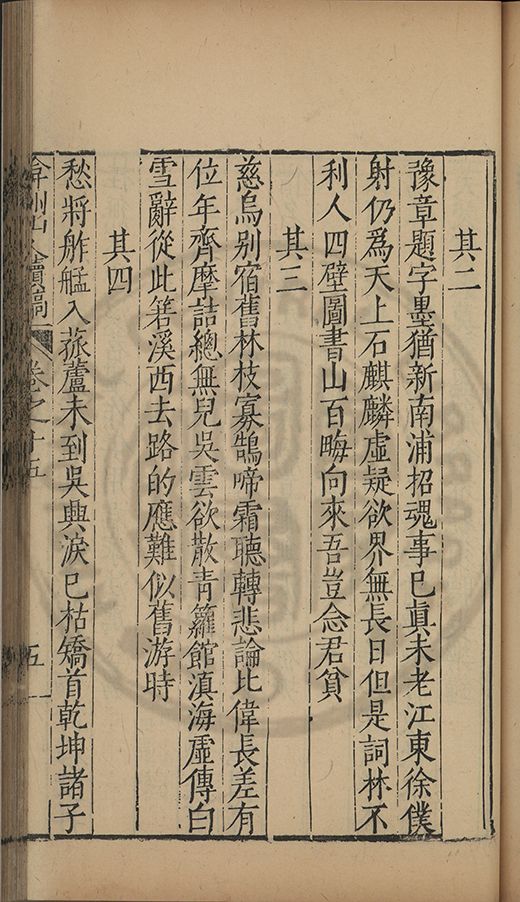 其二
豫章題字墨猶新南浦招魂事已眞未老江東徐僕
射仍爲天上石麒麟虛疑欲界無長日但是詞林不
利人四壁圖書山百畮向來吾豈念君貧
其三
慈烏别宿舊林枝寡鵠啼霜聽轉悲論比偉長差有
位年齊摩詰總無兒吳雲欲散青籮館滇海虛傳白
雪辭從此箬溪西去路的應難似舊游時
其四
愁將舴艋入菰蘆未到吳興淚已枯矯首乾坤諸子
弇州山人續稿 卷之十五 五